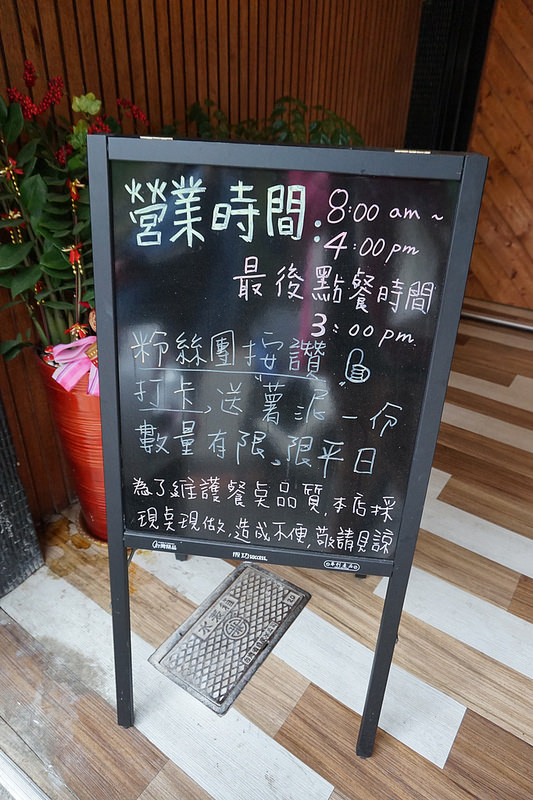 營業時間：8:00 am ~
4:00 pm
最後點餐時間
3:00 pm
粉絲團按讚
打卡，送"薯泥"一份
數量有限。限平日
為了維護餐桌品質，本店採
現桌現做，造成不便，敬請見諒
成功
水表箱